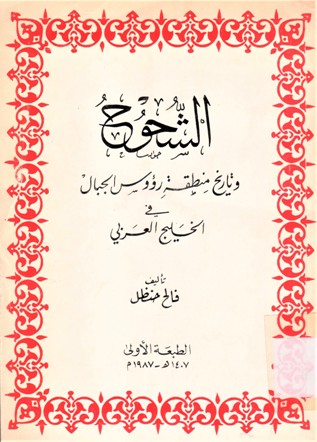 الشحوح
وتاريخ منطقة رؤوس الجبال
في
الخليج العربي
تأليف
فالح حنظل
الطبعة الأولى
١٤٠٧ هـ - ١٩٨٧ م